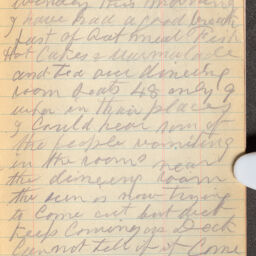 this morning
I have had a good break
fast of Oatmeal Fish
Hot Cakes & Marmalade
and Tea our dineing
room seats 48 only 9
wher in their places
I Could hear som of
the people vomiting
in the rooms near
the dineing room
the sun is now trying
to Come out but
Keeps Coming up Deck
Cannot tell if it Come